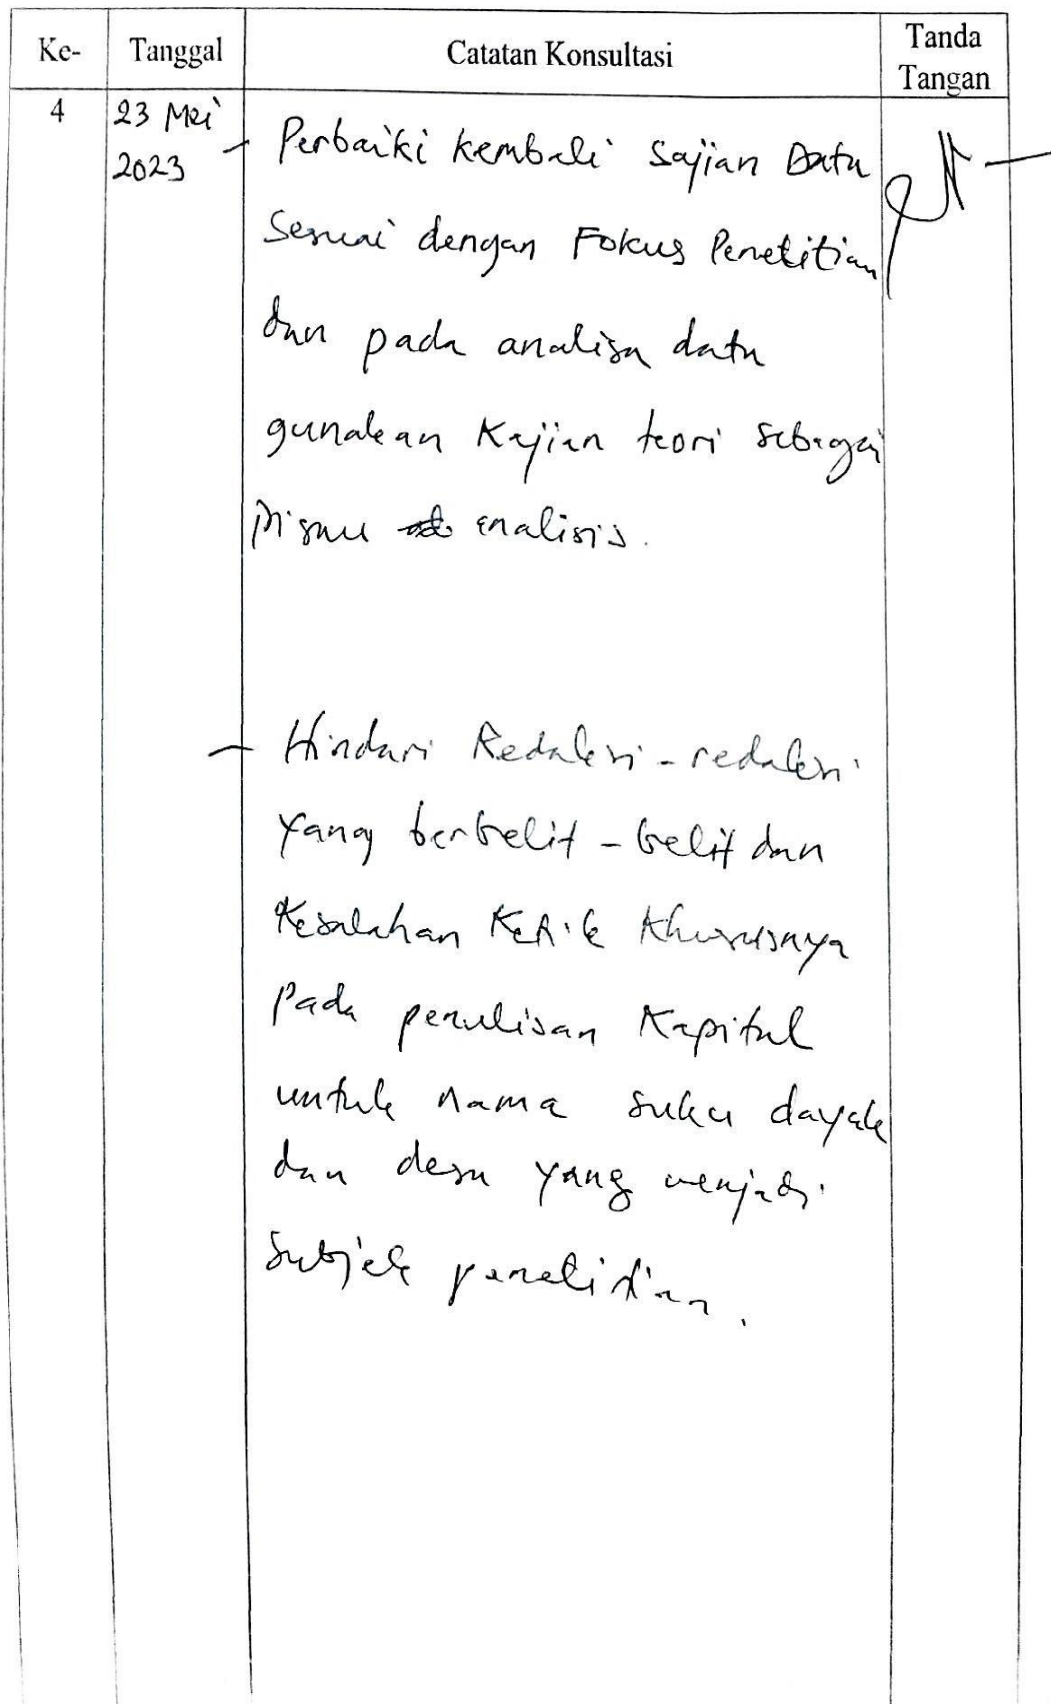 Ke- Tanggal Catatan Konsultasi Tanda Tangan
4 23 Mei 2023
- Perbaiki kembali Sajian Data
Sesuai dengan Fokus Penelitian
dan pada analisa data
gunakan Kajian teori sebagai
Pisau analisis.
- Hindari Redaksi - redaksi
yang berbelit - belit dan
Kesalahan Ketik Khususnya
Pada penulisan Kapital
untuk nama suku dayak
dan desa yang menjadi
Subjek penelitian.